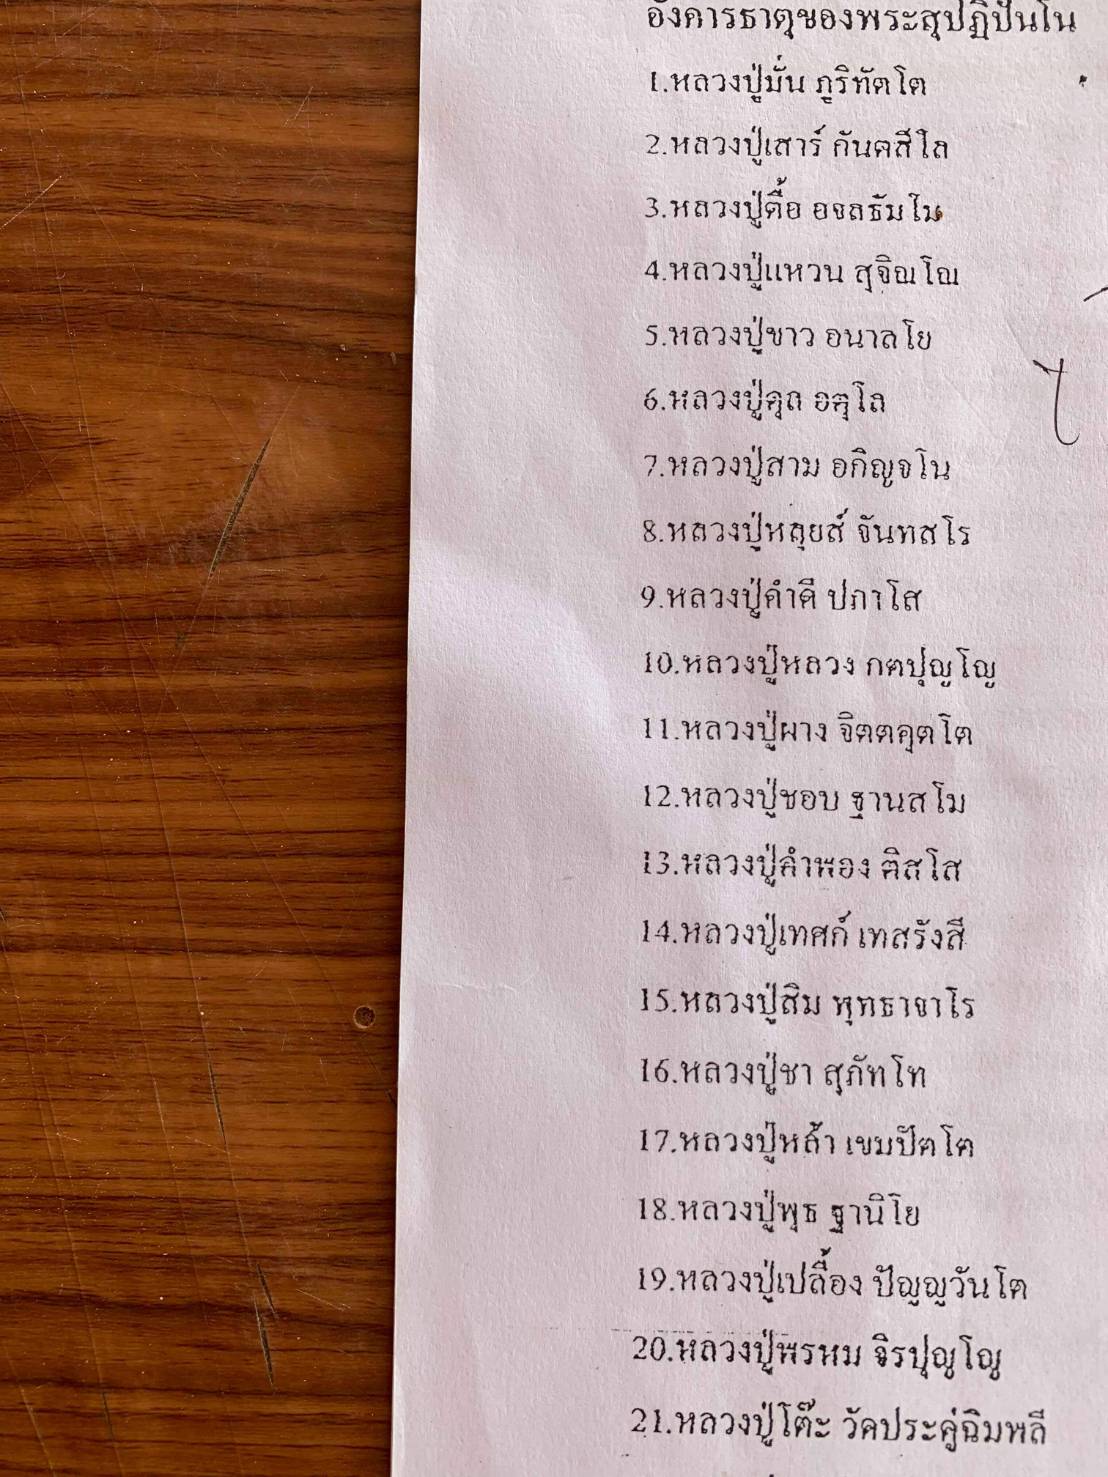 อังคารธาตุของพระสุปฏิปันโน
1.หลวงปู่มั่น ภูริทัตโต
2.หลวงปู่เสาร์ กันตสีโล
3.หลวงปู่ตื้อ อจลธัมโม
4.หลวงปู่แหวน สุจิณโณ
5.หลวงปู่ขาว อนาลโย
6.หลวงปู่ดุล อตุโล
7.หลวงปู่สาม อกิญจโน
8.หลวงปู่หลุยส์ จันทสโร
9.หลวงปู่คำดี ปภาโส
10.หลวงปู่หลวง กตปุญโญ
11.หลวงปู่ผาง จิตตคุตโต
12.หลวงปู่ชอบ ฐานสโม
13.หลวงปู่คำพอง ติสโส
14.หลวงปู่เทศก์ เทสรังสี
15.หลวงปู่สิม พุทธาจาโร
16.หลวงปู่ชา สุภัทโท
17.หลวงปู่หล้า เขมปัตโต
18.หลวงปู่พุธ ฐานิโย
19.หลวงปู่เปลื้อง ปัญญวันโต
20.หลวงปู่พรหม จิรปุญโญ
21.หลวงปู่โต๊ะ วัดประดู่ฉิมพลี